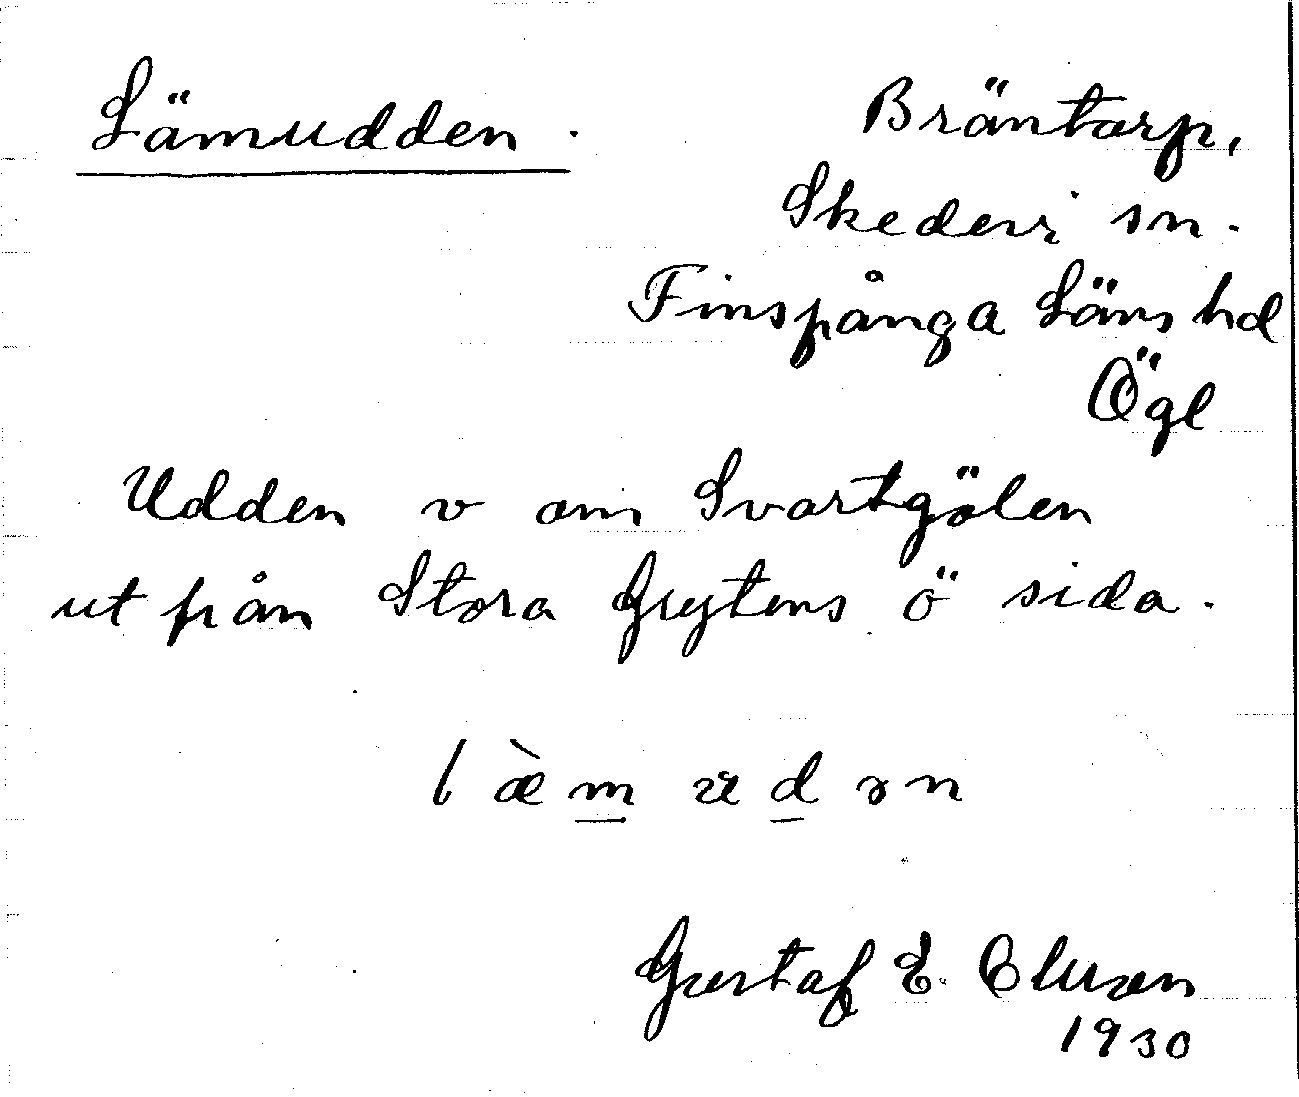 Lämudden. Bräntorp,
Skedevi sn.
Finspånga Läns hd
Ögl
Udden v om Svartgölen
ut från Stora Grytens ö sida.
l æ̀ m u d ə n
Gustaf E. Cluxen
1930